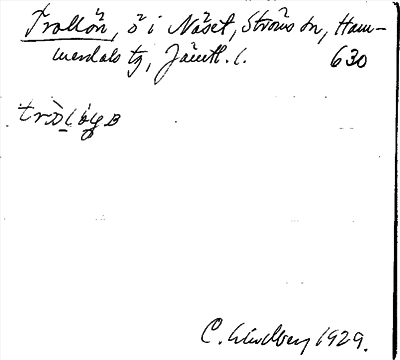 Trollön, ö i Näset, Ströms sn, Ham-
merdals tg, Jämtl. l. 630
C. Lindberg 1929.